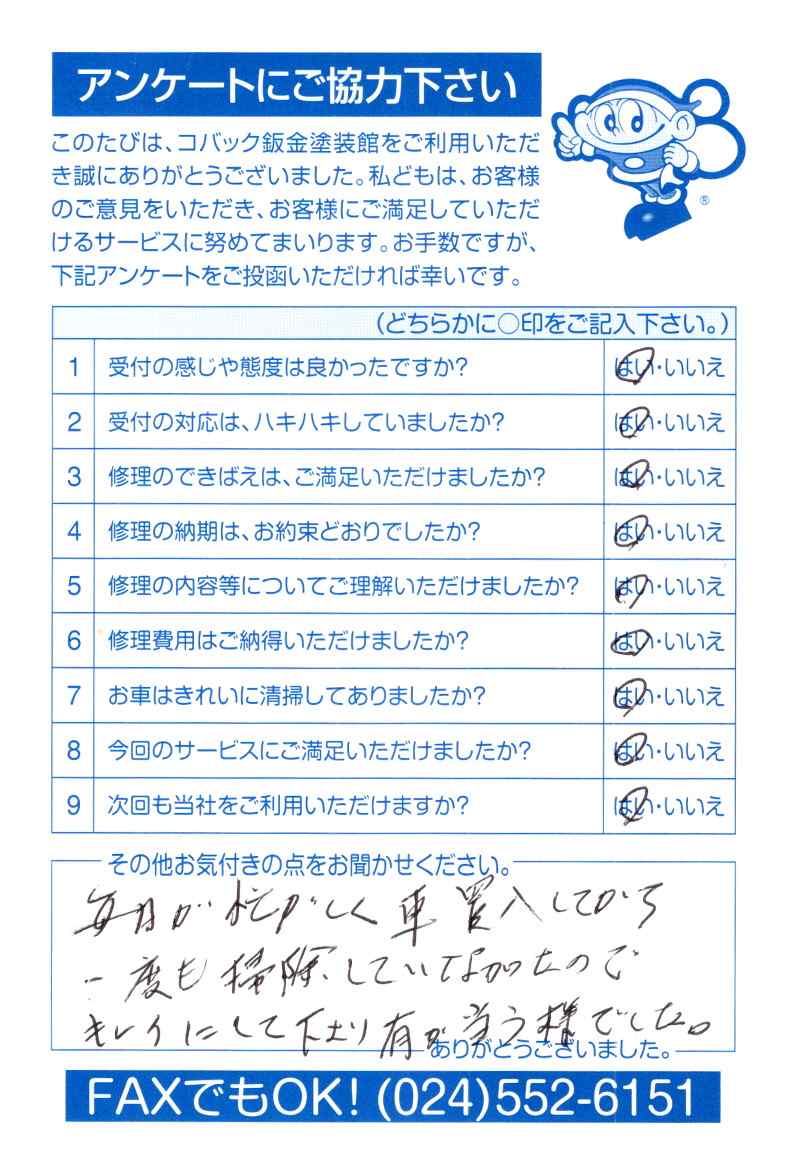 アンケートにご協力下さい
このたびは、コバック鈑金塗装館をご利用いただ
き誠にありがとうございました。私どもは、お客様
のご意見をいただき、お客様にご満足していただ
けるサービスに努めてまいります。お手数ですが、
下記アンケートをご投函いただければ幸いです。
®
(どちらかに○印をご記入下さい。)
1 受付の感じや態度は良かったですか? はい・いいえ
2 受付の対応は、ハキハキしていましたか? はい・いいえ
3 修理のできばえは、ご満足いただけましたか? はい・いいえ
4 修理の納期は、お約束どおりでしたか? はい・いいえ
5 修理の内容等についてご理解いただけましたか? はい・いいえ
6 修理費用はご納得いただけましたか? はい・いいえ
7 お車はきれいに清掃してありましたか? はい・いいえ
8 今回のサービスにご満足いただけましたか? はい・いいえ
9 次回も当社をご利用いただけますか? はい・いいえ
その他お気付きの点をお聞かせください。
毎日が忙がしく車買入してから
一度も掃除していなかったので
キレイにして下さり有が当う様でした。
ありがとうございました。
FAXでもOK! (024)552-6151